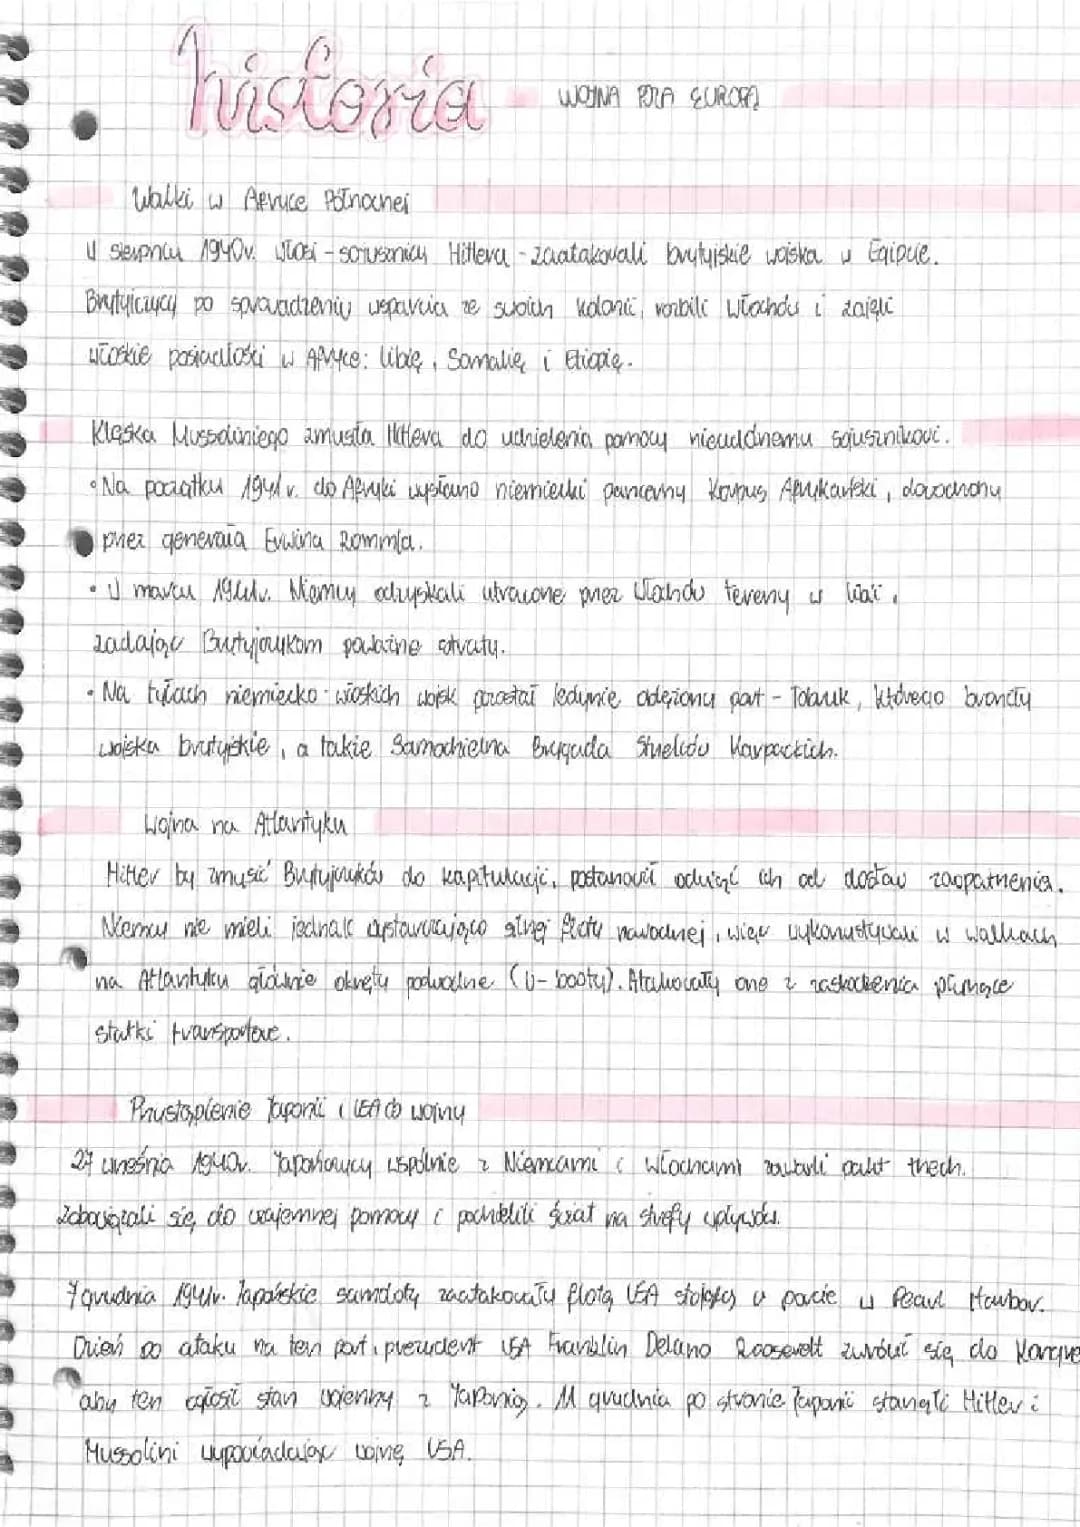 historia WOJNA POZA EUROPĄ
Walki w Afryce Północnej
W sierpniu 1940r. Włosi - sojusznicy Hitlera - zaatakowali brytyjskie wojska w Egipcie.
Brytyjczycy po sprowadzeniu wsparcia ze swoich kolonii, rozbili Włochów i zajęli
włoskie posiadłości w Afryce: Libię, Somalię i Etiopię.
Klęska Mussoliniego zmusiła Hitlera do udzielenia pomocy nieudolnemu sojusznikowi.
• Na początku 1941r. do Afryki wysłano niemiecki pancerny Korpus Afrykański, dowodzony
przez generała Erwina Rommla.
• W marcu 1941r. Niemcy odzyskali utracone przez Włochów tereny w Libii,
zadając Brytyjczykom poważne straty.
• Na tyłach niemiecko-włoskich wojsk pozostał jedynie oblężony port - Tobruk, którego broniły
wojska brytyjskie, a także Samodzielna Brygada Strzelców Karpackich.
Wojna na Atlantyku
Hitler by zmusić Brytyjczyków do kapitulacji, postanowił odciąć ich od dostaw zaopatrzenia.
Niemcy nie mieli jednak wystarczająco silnej floty nawodnej, więc wykorzystywali w walkach
na Atlantyku głównie okręty podwodne (U-booty). Atakowały one z zaskoczenia płynące
statki transportowe.
Przystąpienie Japonii i USA do wojny
27 września 1940r. Japończycy wspólnie z Niemcami i Włochami zawarli pakt trzech.
Zobowiązali się do wzajemnej pomocy i podzielili świat na strefy wpływów.
7 grudnia 1941r. Japońskie samoloty zaatakowały flotę USA stojącą w porcie w Pearl Harbor.
Dzień po ataku na ten port, prezydent USA Franklin Delano Roosevelt zwrócił się do Kongre
aby ten ogłosił stan wojenny z Japonią. 11 grudnia po stronie Japonii stanęli Hitler i
Mussolini wypowiadając wojnę USA.